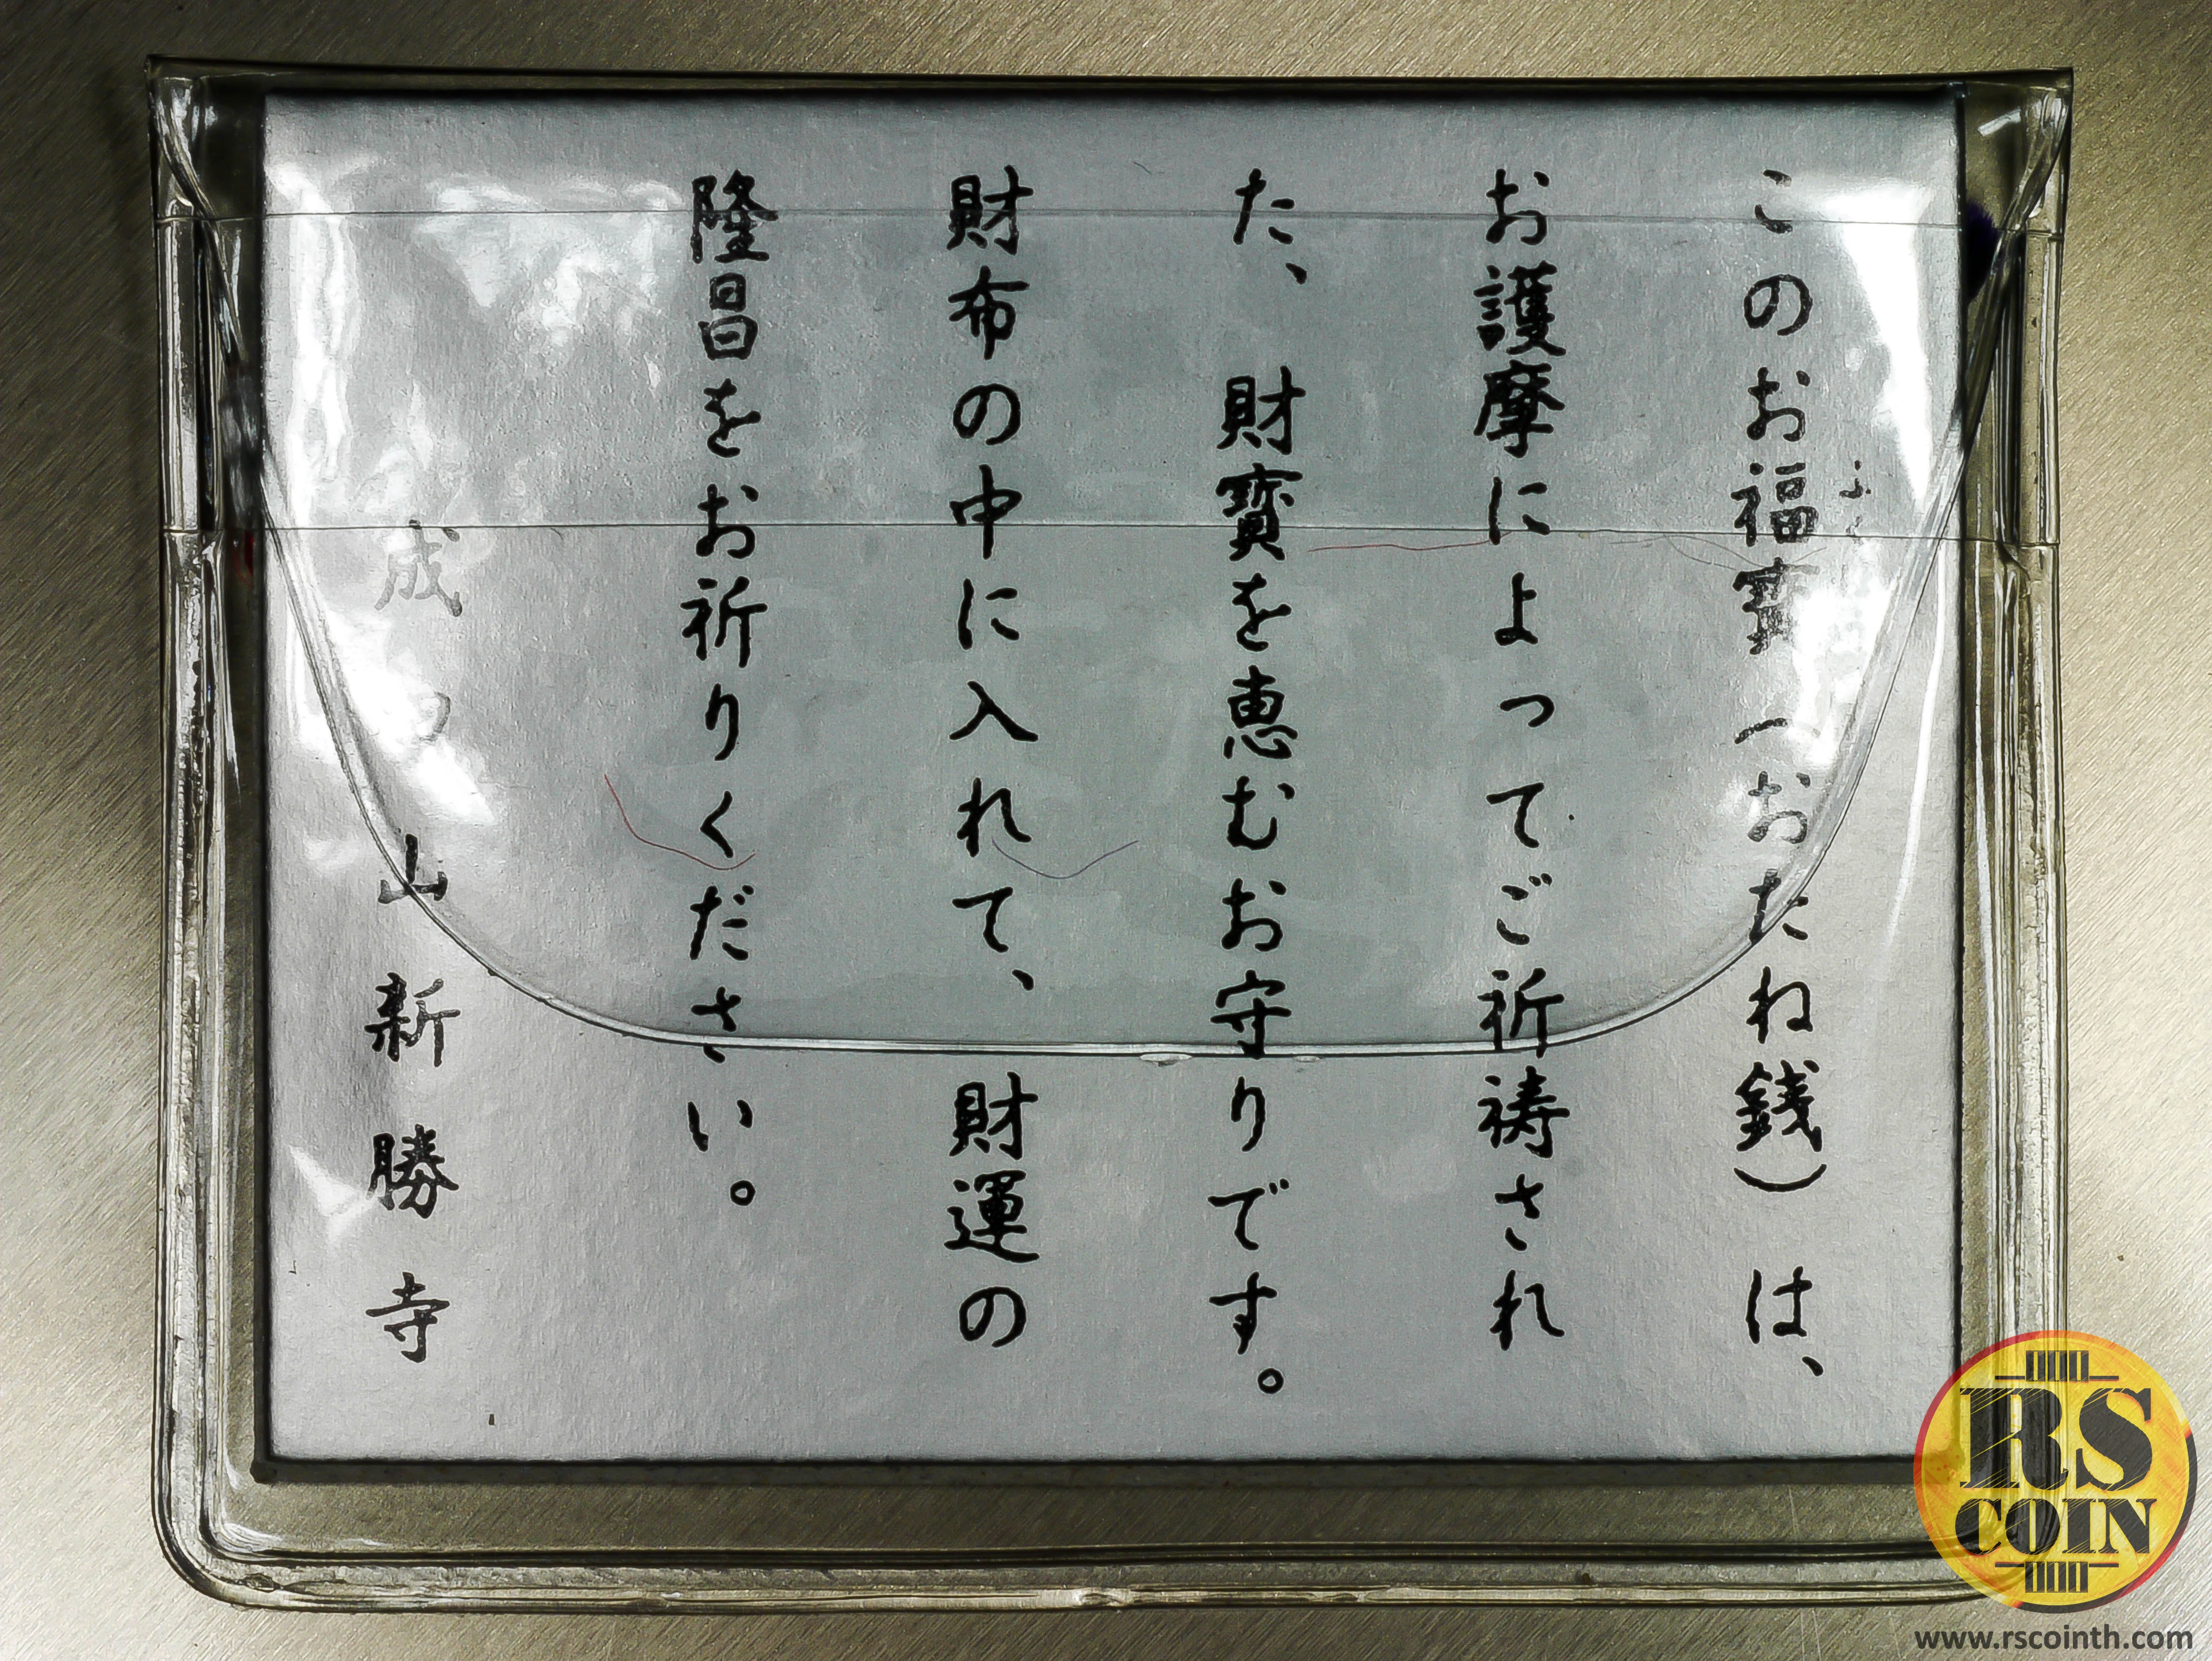 このお福寶（おたね銭）は、
お護摩によってご祈祷され
た、財寶を恵むお守りです。
財布の中に入れて、財運の
隆昌をお祈りください。
成田山新勝寺
RS
COIN
www.rscointh.com